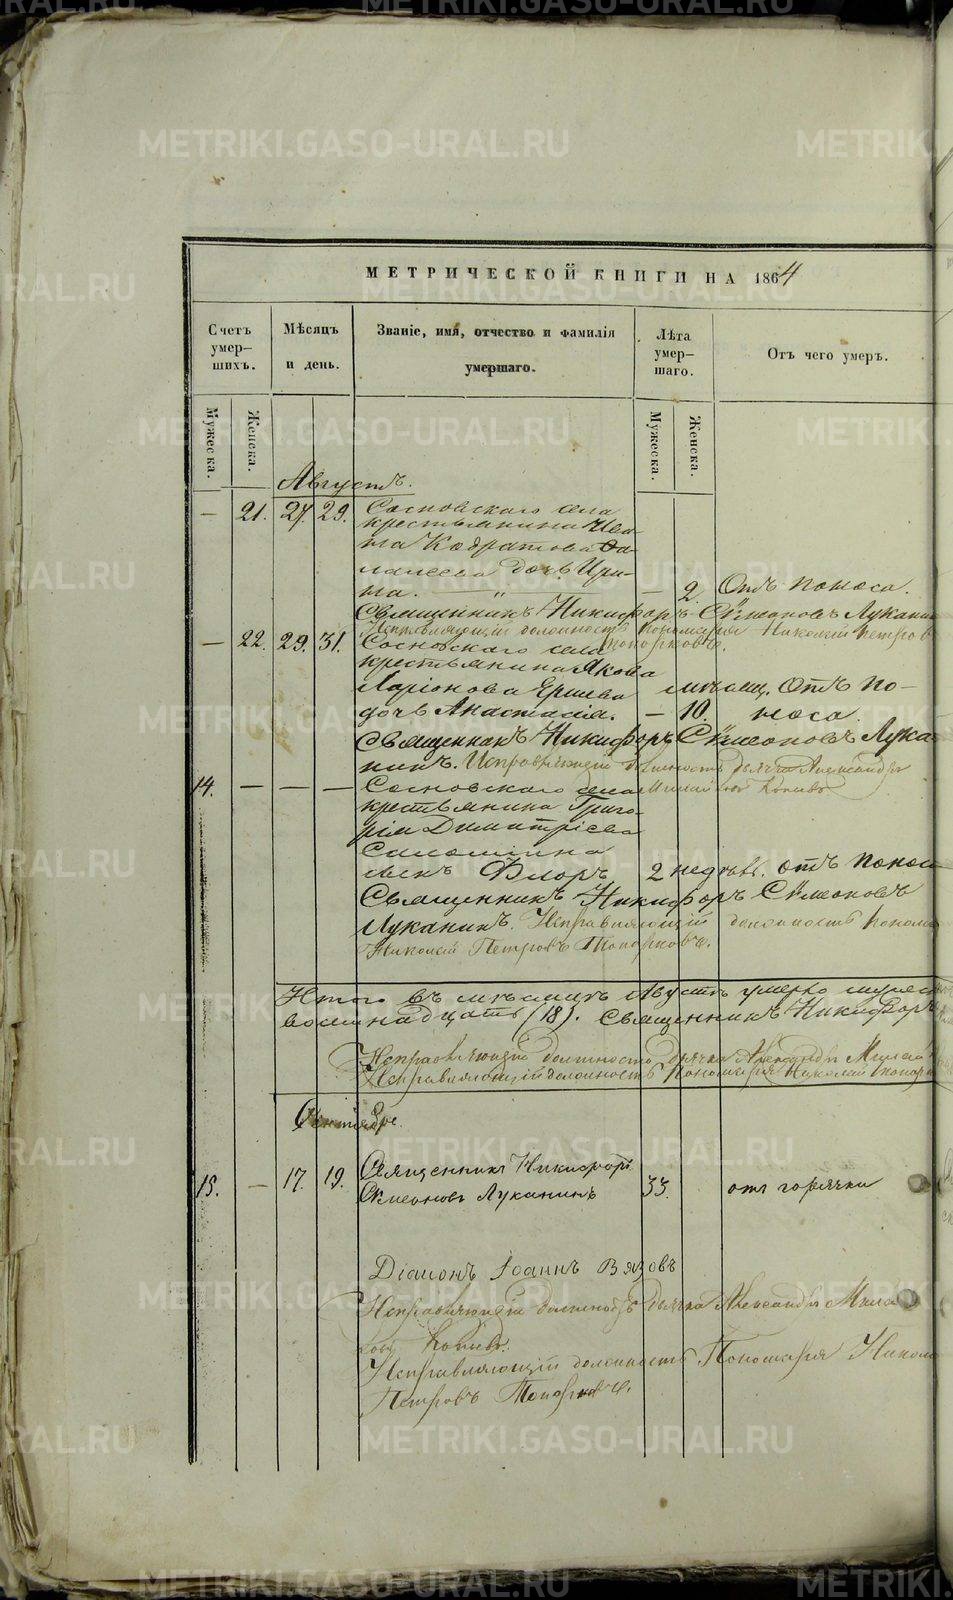 МЕТРИЧЕСКОЙ КНИГИ НА 1864
Счетъ умер-шихъ.
Мѣсяцъ и день.
Званіе, имя, отчество и фамилія умершаго.
Лѣта умер-шаго.
Отъ чего умеръ.
Мужеска.
Женска.
Мужеска.
Женска.
Августъ.
— 21. 27. 29. Сосновскаго села
крестьянина Ива-
на Кодратова
дочь Ири-
на. — 2 Отъ поноса.
Священникъ Никифоръ Сѵмеоновъ Луканин
Исправляющій должность пономаря Николай Петров
Топорковъ.
— 22. 29. 31. Сосновскаго села
крестьянина Якова
Ларіонова Ершева мѣсяц. Отъ по-
дочь Анастасія. — 10. носа.
Священникъ Никифоръ Сѵмеоновъ Лука-
нинъ. Исправляющій должность дьячка Александръ
14. — — — Сосновскаго села
крестьянина Григо-
рія Димитріева
сынъ Флоръ 2 недѣл. отъ понос
Священникъ Никифоръ Сѵмеоновъ
Луканинъ. Исправляющій должность поном
Николай Петровъ Топорковъ.
Итого въ мѣсяцѣ Августѣ умерло мужес
восемнадцать (18). Священникъ Никифоръ
Исправляющій должность дьячка Александръ
Исправляющій должность Пономаря Николай Топор
Сентябре.
15. — 17. 19. Священникъ Никифоръ
Сѵмеоновъ Луканинъ 33. отъ горячки
Діаконъ Іоаннъ Вязовъ
Исправляющій должность дьячка Александръ
Исправляющій должность Пономаря Никола
Петровъ Топорковъ.
METRIKI.GASO-URAL.RU